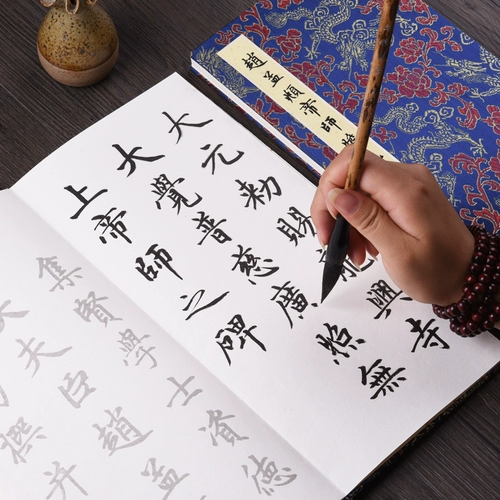 趙孟頫帝師
大元勑賜龍興寺
大覺普慈廣照無
上帝師之碑
集賢學士資德
大夫臣趙孟
撰并